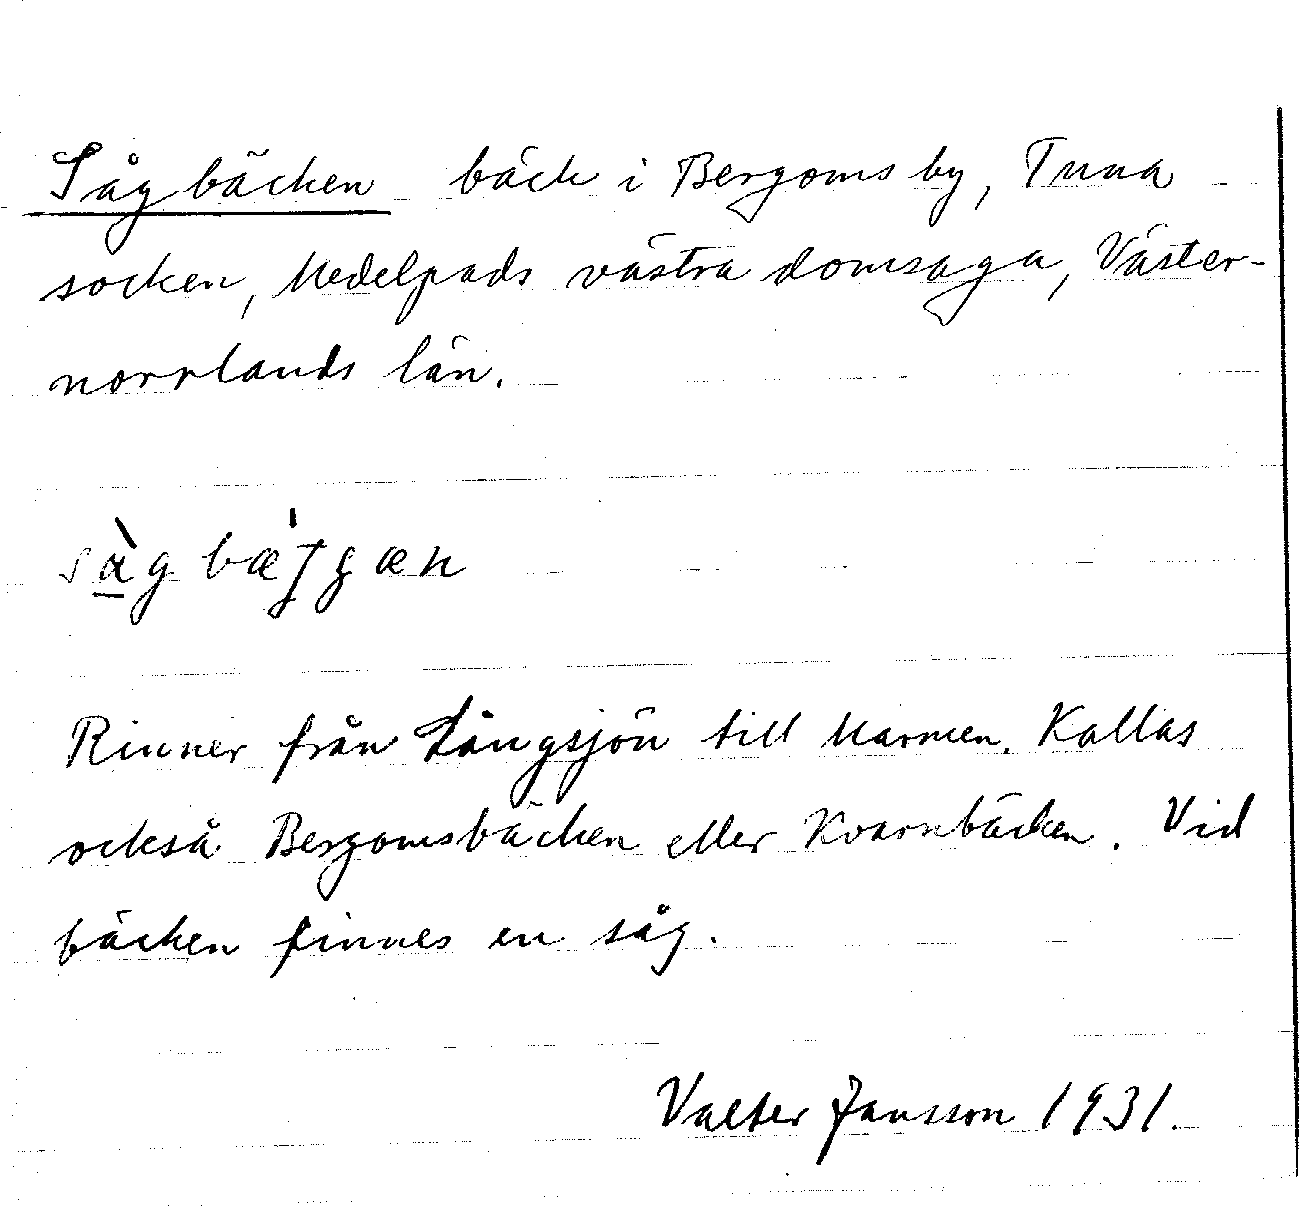 Sågbäcken bäck i Bergoms by, Tuna
socken, Medelpads västra domsaga, Väster-
norrlands län.
Rinner från Långsjön till Marmen. Kallas
också Bergomsbäcken eller Kvarnbäcken. Vid
bäcken finnes en såg.
Valter Jansson 1931.